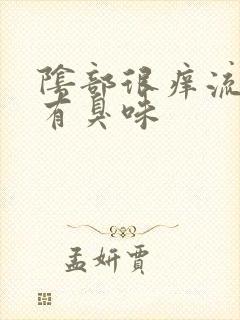 陰部很痒流
有臭味
孟妍賈